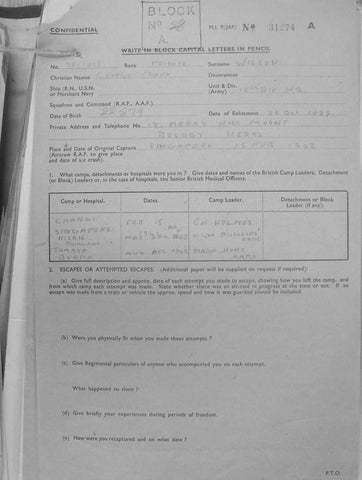 BLOCK
No 88
A.
CONFIDENTIAL
M.I. 9/JAP/ No 31274 A
WRITE IN BLOCK CAPITAL LETTERS IN PENCIL
No. Rank PRIVATE Surname WILSON
Christian Names GEORGE Decorations
Ship (R.N., U.S.N. or Merchant Navy Unit & Div. (Army) 18 DIV HQ.
Squadron and Command (R.A.F., A.A.F.)
Date of Birth Date of Enlistment
Private Address and Telephone No. MERRY HILL MOUNT
BUSHEY HERTS
Place and Date of Original Capture SINGAPORE 15 FEB 1942
(Aircrew R.A.F. to give place
and date of a/c crash).
1. What camps, detachments or hospitals were you in? Give dates and names of the British Camp Leaders, Detachment
(or Block) Leaders or, in the case of hospitals, the Senior British Medical Officers.
Camp or Hospital. Dates. Camp Leader. Detachment or Block Leader (if any).
CHANGI FEB 15 HOLMES
SINGAPORE
THAILAND
BURMA AUG
2. ESCAPES OR ATTEMPTED ESCAPES. (Additional paper will be supplied on request if required).
(a) Give full description and approx. date of each attempt you made to escape, showing how you left the camp, and
from which camp each attempt was made. State whether there was an air-raid in progress at the time or not. If an
escape was made from a train or vehicle the approx. speed and how it was guarded should be included.
(b) Were you physically fit when you made these attempts?
(c) Give Regimental particulars of anyone who accompanied you on each attempt.
What happened to them?
(d) Give briefly your experiences during periods of freedom.
(e) How were you recaptured and on what date?
P.T.O.